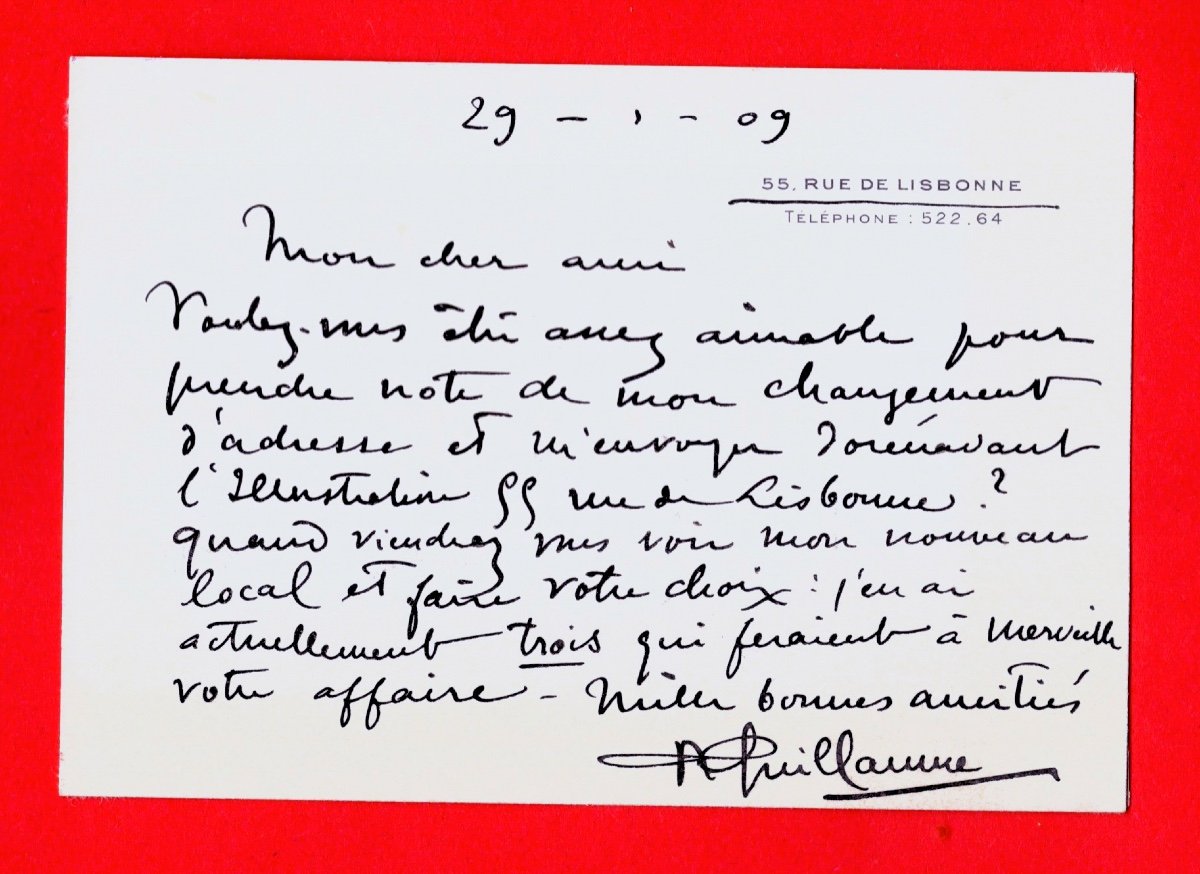 29 - 1 - 09
55, RUE DE LISBONNE
TÉLÉPHONE : 522.64
Mon cher ami
Voulez-vous être assez aimable pour
prendre note de mon changement
d'adresse et m'envoyer dorénavant
l'Illustration 55 rue de Lisbonne ?
quand viendrez vous voir mon nouveau
local et faire votre choix : j'en ai
actuellement trois qui feraient à merveille
votre affaire - Mille bonnes amitiés
A Guillaume